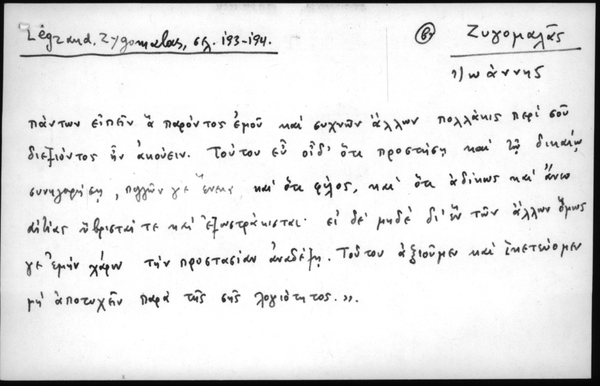 Légrand, Zygomalas, σελ. 193-194.
Ζυγομαλᾶς
Ἰωάννης
πάντων εἰπεῖν ἃ παρόντος ἐμοῦ καὶ συχνῶν ἄλλων πολλάκις περὶ σοῦ
διεξιόντος ἦν ἀκούειν. Τούτου εὖ οἶδ' ὅτι προστήσῃ καὶ τῷ δικαίῳ
συνηγορήσῃ, πολλῶν γε ἕνεκα καὶ ὅτι φίλος, καὶ ὅτι ἀδίκως καὶ ἄνευ
αἰτίας ὕβρισταί τε καὶ ἐξωστράκισται· εἰ δὲ μηδὲ δι' ἓν τῶν ἄλλων ὅμως
γε ἐμὴν χάριν τὴν προστασίαν ἀναδέξῃ. Τούτου ἀξιοῦμεν καὶ ἱκετεύομεν
μὴ ἀποτυχεῖν παρὰ τῆς σῆς λογιότητος.».